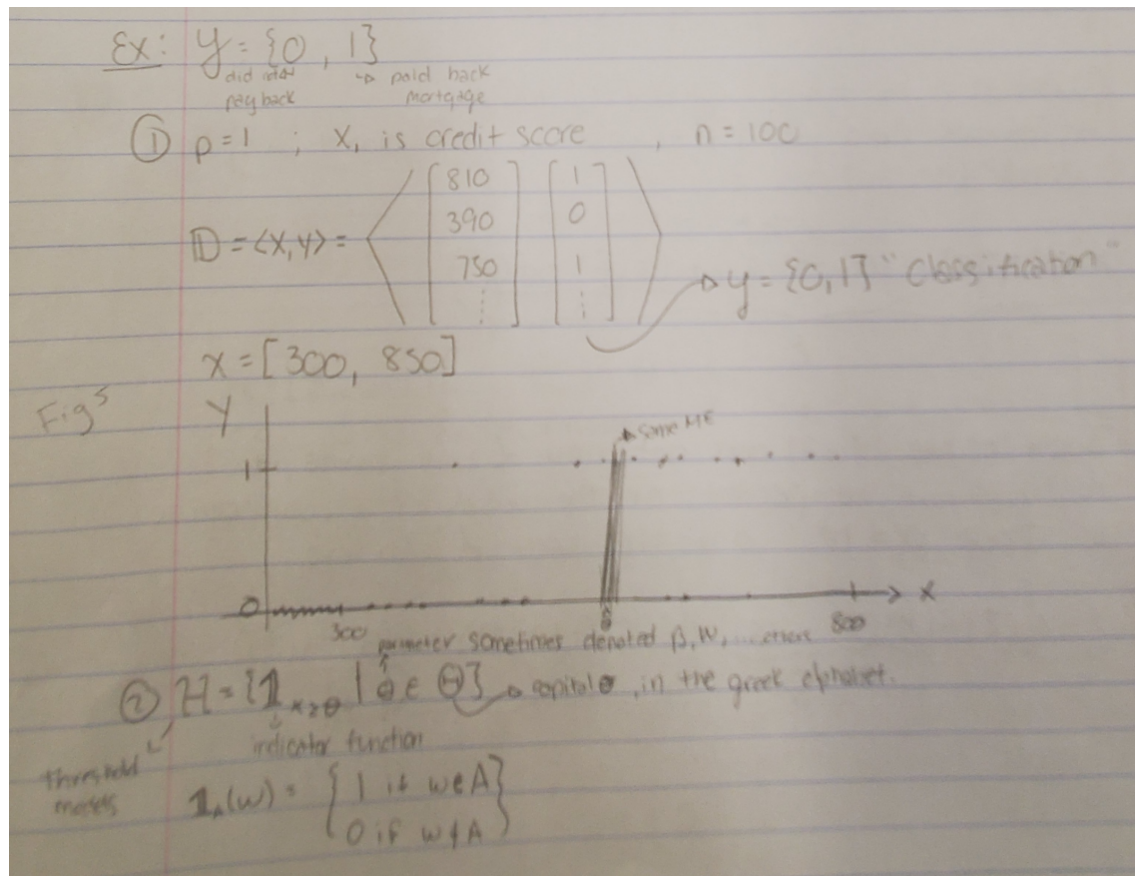 Ex: y = {0, 1}
did not pay back ↳ paid back mortgage
① p=1 ; x₁ is credit score , n = 100
𝔻 = <X,y> = < [810 390 750 ⋮] [1 0 1 ⋮] >
y = {0,1} "Classification"
x = [300, 850]
Fig 5
Y
same ME
1
0
300
800
x
θ
parameter sometimes denoted β, W, ...
② H = {𝟙ₓ≥θ | θ ∈ Θ} → capital θ, in the greek alphabet.
indicator function
threshold models
𝟙_A(w) = { 1 if w∈A
0 if w∉A }